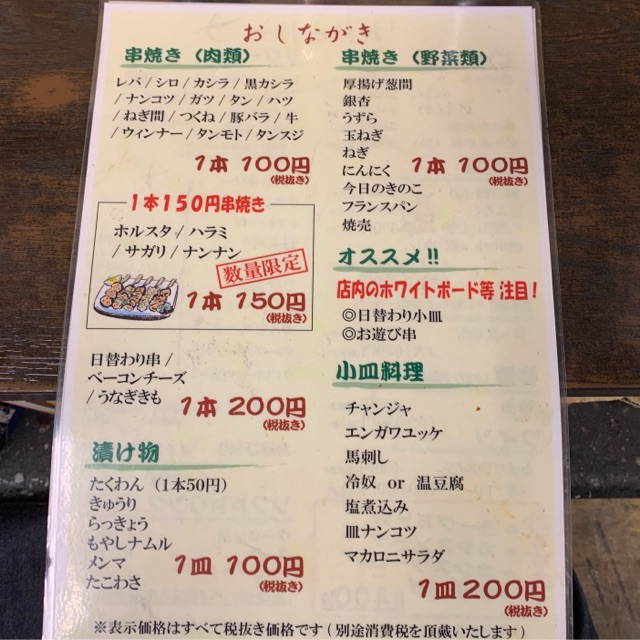 おしながき
串焼き（肉類）
レバ / シロ / カシラ / 黒カシラ
/ ナンコツ / ガツ / タン / ハツ
/ ねぎ間 / つくね / 豚バラ / 牛
/ ウィンナー / タンモト / タンスジ
1本 100円
(税抜き)
1本150円串焼き
ホルスタ / ハラミ
/ サガリ / ナンナン
数量限定
1本 150円
(税抜き)
日替わり串 /
ベーコンチーズ
/ うなぎきも
1本 200円
(税抜き)
漬け物
たくわん（1本50円）
きゅうり
らっきょう
もやしナムル
メンマ
たこわさ
1皿 100円
(税抜き)
串焼き（野菜類）
厚揚げ葱間
銀杏
うずら
玉ねぎ
ねぎ
にんにく
今日のきのこ
フランスパン
焼売
1本 100円
(税抜き)
オススメ!!
店内のホワイトボード等 注目！
◎日替わり小皿
◎お遊び串
小皿料理
チャンジャ
エンガワユッケ
馬刺し
冷奴 or 温豆腐
塩煮込み
皿ナンコツ
マカロニサラダ
1皿 200円
(税抜き)
※表示価格はすべて税抜き価格です ( 別途消費税を頂戴いたします )